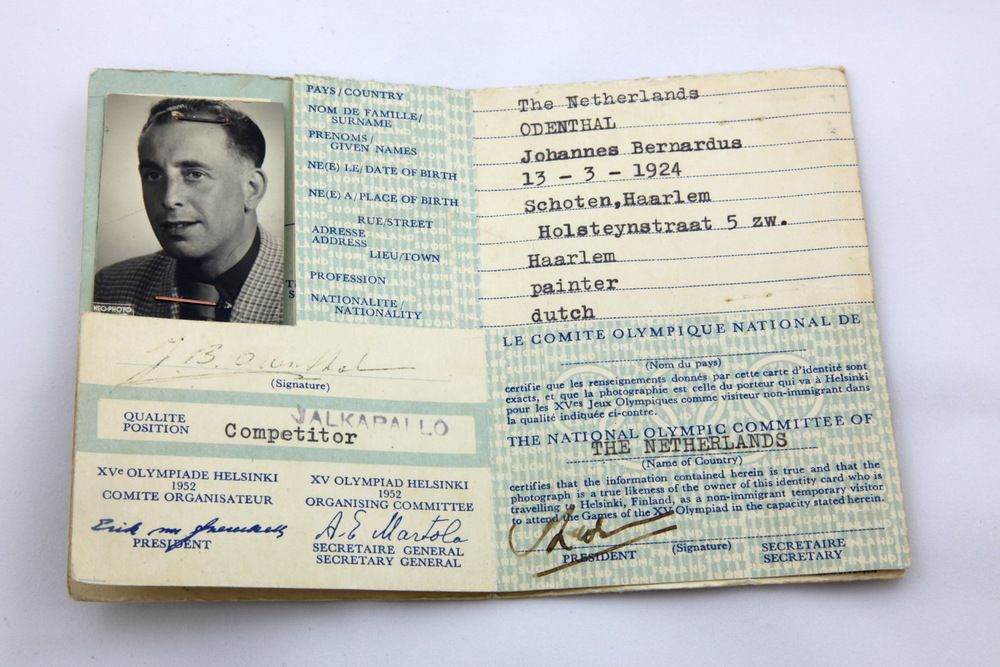 PAYS / COUNTRY
The Netherlands
NOM DE FAMILLE /
SURNAME
ODENTHAL
PRENOMS /
GIVEN NAMES
Johannes Bernardus
NE(E) LE / DATE OF BIRTH
13 - 3 - 1924
NE(E) A / PLACE OF BIRTH
Schoten,Haarlem
RUE/STREET
Holsteynstraat 5 zw.
ADRESSE
ADDRESS
LIEU/TOWN
Haarlem
PROFESSION
painter
NATIONALITE /
NATIONALITY
dutch
NEO-PHOTO
J.B. Odenthal
(Signature)
QUALITE
POSITION
JALKAPALLO
Competitor
XVe OLYMPIADE HELSINKI
1952
COMITE ORGANISATEUR
PRESIDENT
XV OLYMPIAD HELSINKI
1952
ORGANISING COMMITTEE
A-E Martola
SECRETAIRE GENERAL
SECRETARY GENERAL
LE COMITE OLYMPIQUE NATIONAL DE
(Nom du pays)
certifie que les renseignements donnés par cette carte d'identité sont
exacts, et que la photographie est celle du porteur qui va à Helsinki
pour les XVes Jeux Olympiques comme visiteur non-immigrant dans
la qualité indiquée ci-contre.
THE NATIONAL OLYMPIC COMMITTEE OF
THE NETHERLANDS
(Name of Country)
certifies that the information contained herein is true and that the
photograph is a true likeness of the owner of this identity card who is
travelling to Helsinki, Finland, as a non-immigrant temporary visitor
to attend the Games of the XV Olympiad in the capacity stated herein.
PRESIDENT
(Signature)
SECRETAIRE
SECRETARY